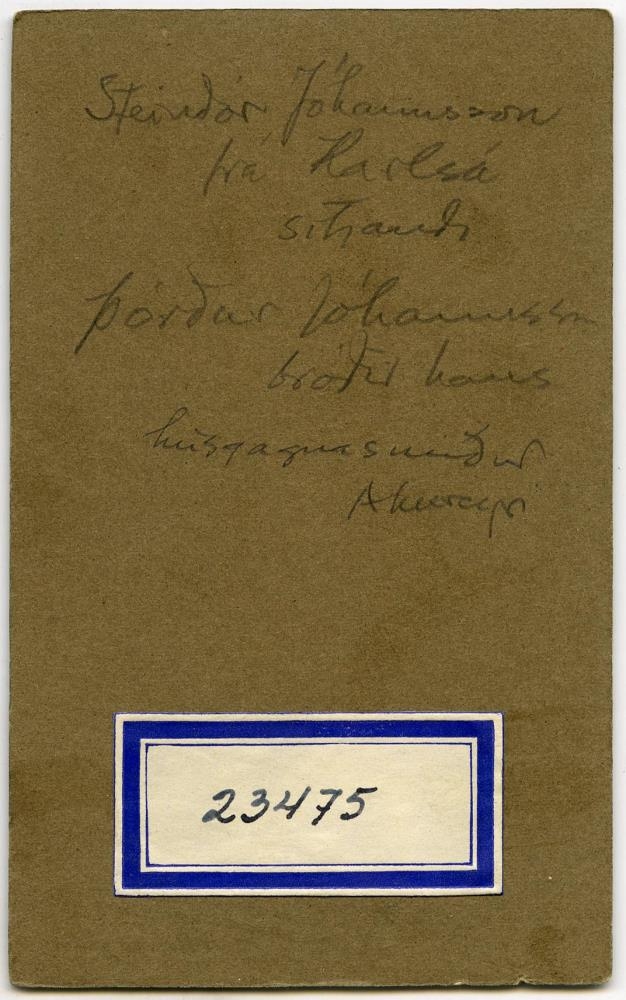 Steindór Jóhannsson
frá Karlsá
sitjandi
Þórður Jóhannsson
bróðir hans
húsgagnasmiður
Akureyri
23475